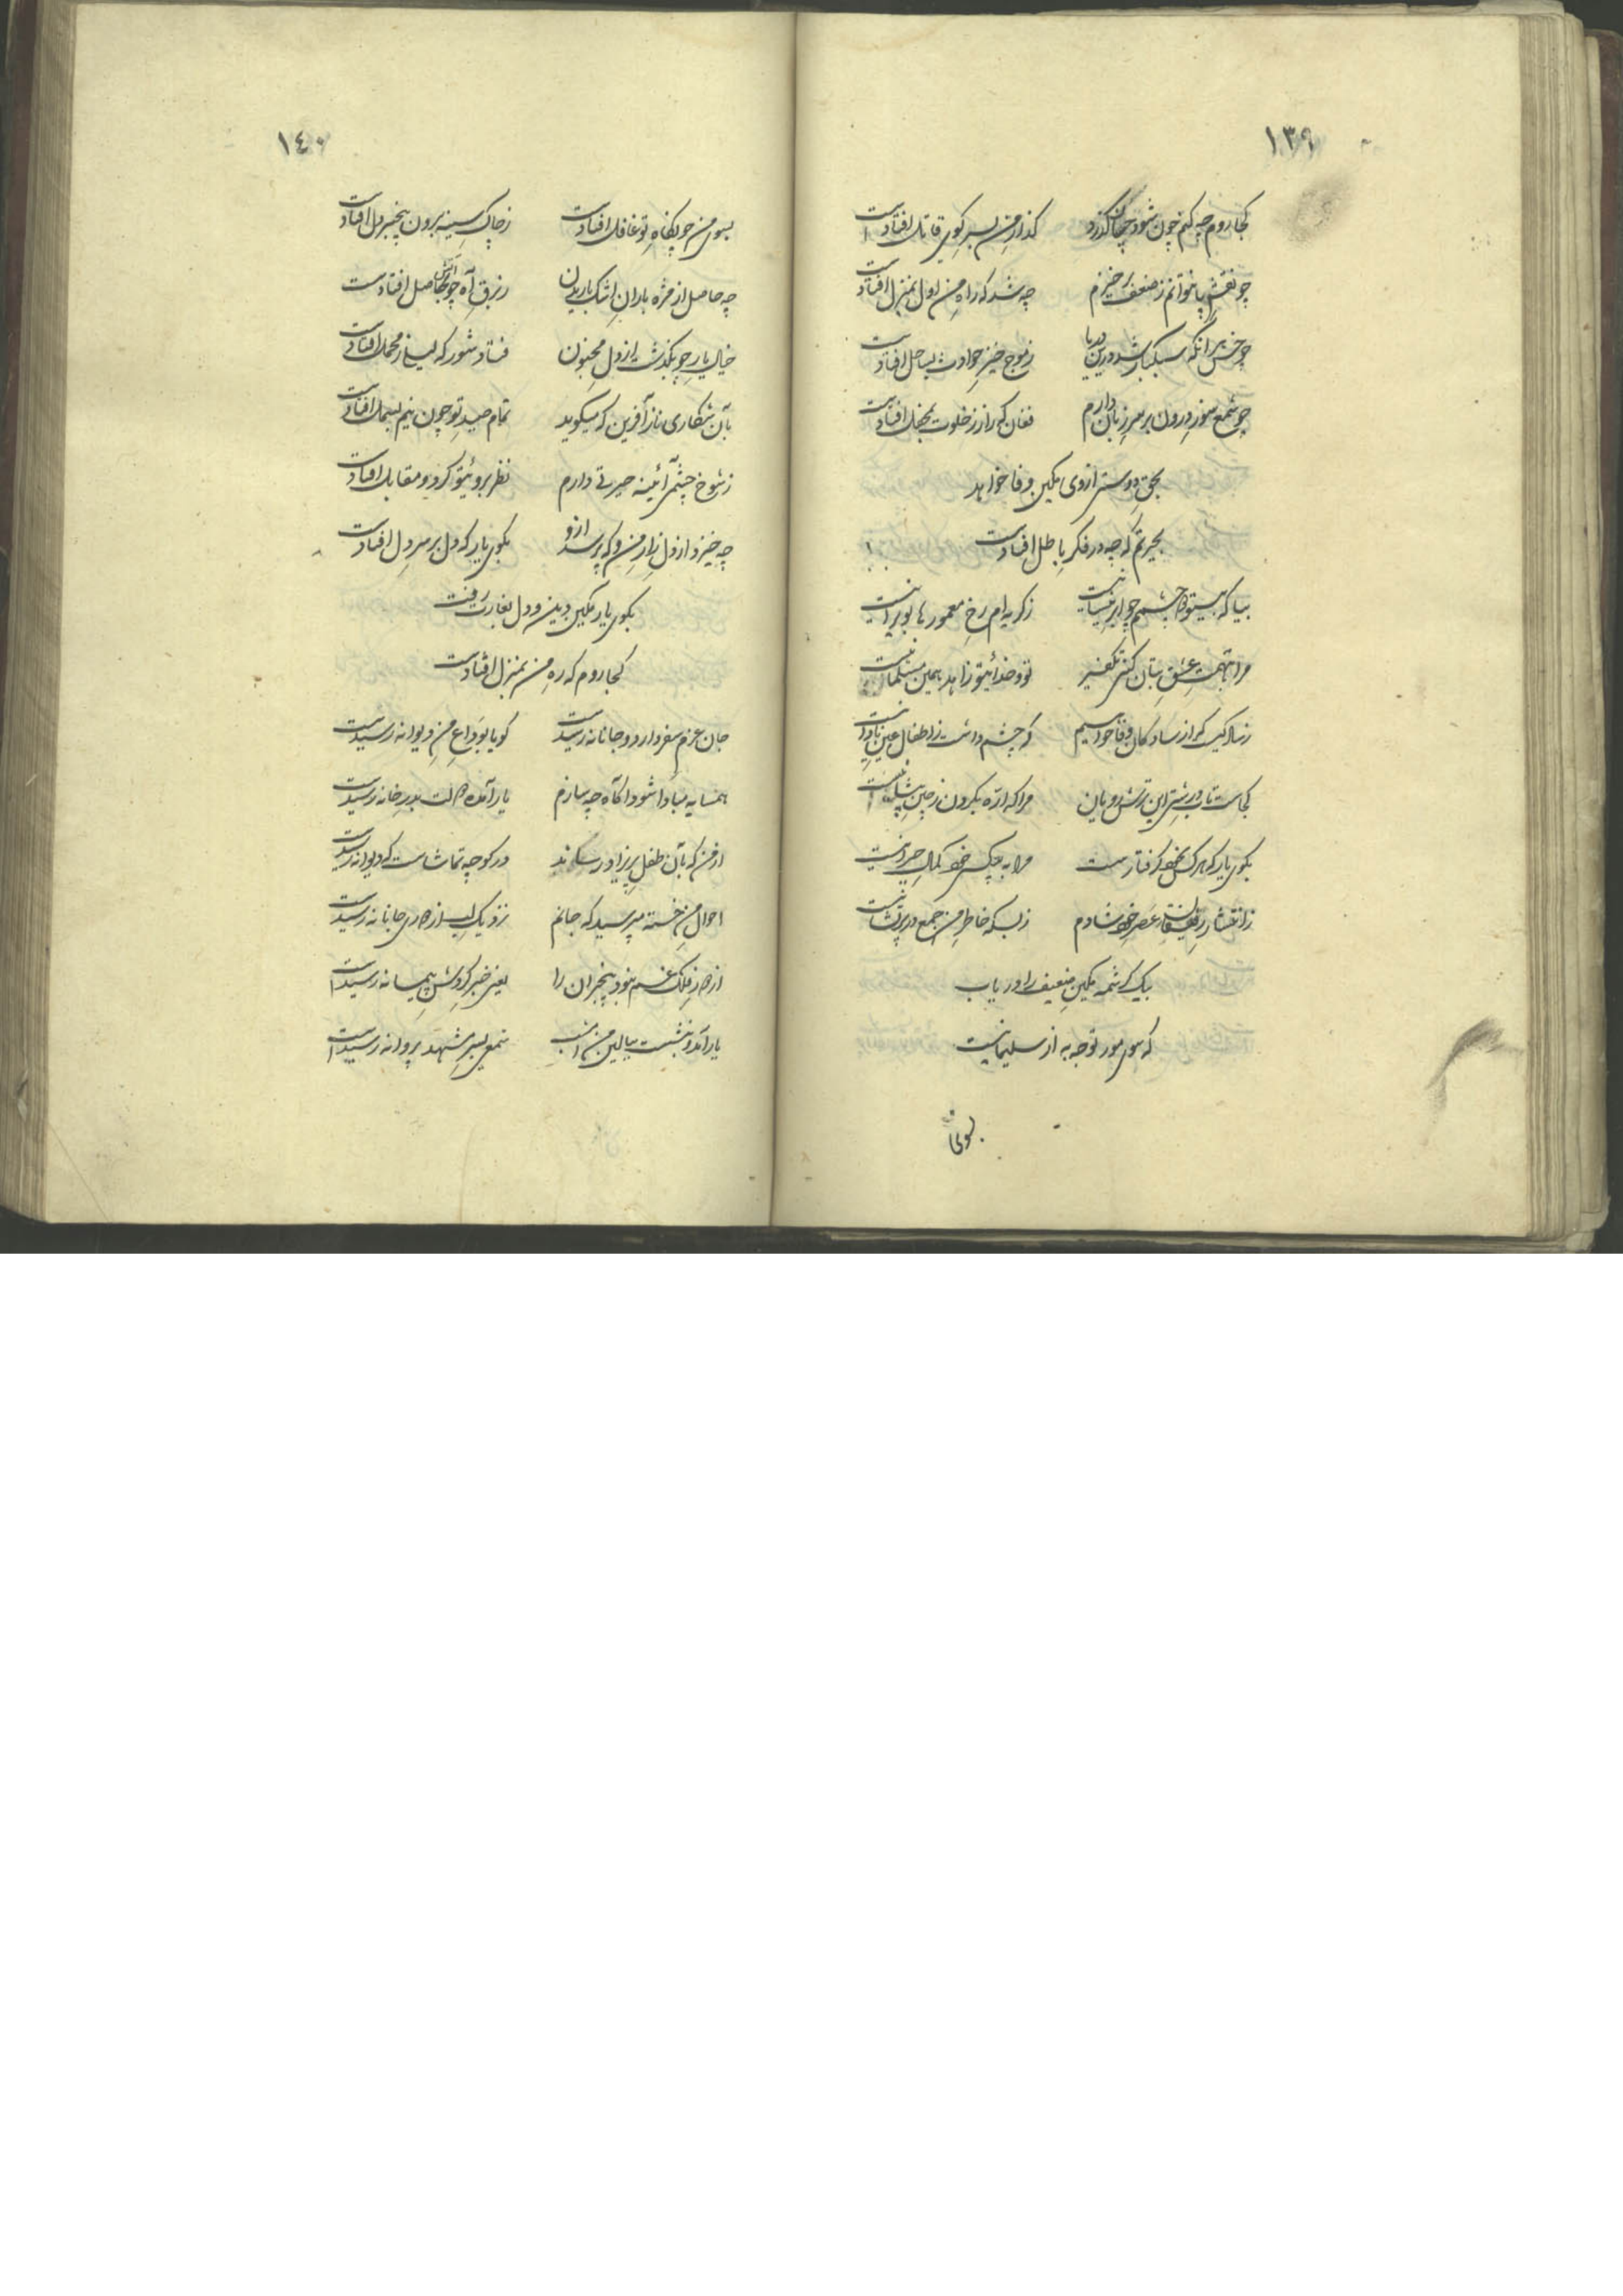 ١٣٩
کجا روم چه کنم خون شود چسان گذرد گذار من بسر کوی قاتل افتادست
چو نقش پا نتوانم ز ضعف برخیزم چه شد که راه من اول بمنزل افتادست
چو خس هر آنکه سبکبار شد درین دریا ز موج خیز حوادث بساحل افتادست
چو شمع سوز درون بر سر زبان دارم فغان که راز ز خلوت بمحفل افتادست
بحق دوستی از وی مکین وفا خواهد
بحیرتم که چه در فکر باطل افتادست
بیا که بیتو چشمم چو ابر نیسانیست ز گریه ام رخ معمورها بویرانیست
مرا بتهمت عشق بتان کنی تکفیر تو و خدائیتو زاهد همین مسلمانیست
ز سادگیست که از سادگان وفا خواهیم که چشم داشت ز اطفال عین نادانیست
کجاست تاب درشتی این ترش رویان مرا که اره بگردن ز چین پیشانیست
بکوی یار که هر کس بخود گرفتارست مرا به بیکسی خود کمال حیرانیست
ز انتشار عصر خود شادم ز بسکه خاطر من جمع در پریشانیست
بیک کرشمه مکین ضعیف را دریاب
که سوی مور توجه به از سلیمانیست
بسوی
١٤٠
بسوی من چو نگاه تو غافل افتادست ز چاک سینه برون بیخبر دل افتادست
چه حاصل از مژه باران اشک باریدن ز برق آه چو آتش بحاصل افتادست
خیال یار چو بگذشت از دل مجنون فتاد شور که لیلی ز محمل افتادست
بآن شکاری ناز آفرین که میگوید تمام صید تو چون نیم بسمل افتادست
ز شوخ چشمی آئینه حیرتی دارم نظر بروئیتو کرد و مقابل افتادست
چه خیزد از دل زار من و که پرسد ازو بکوی یار که دل بر سر دل افتادست
بکوی یار مکین دین و دل بغارت رفت
کجا روم که ره من بمنزل افتادست
جان عزم سفر دارد و جانانه رسیدست گویا بوداع من دیوانه رسیدست
همسایه مبادا شود آگاه چه سازم یار آمده مست بدر خانه رسیدست
از من که بآن طفل پریزاد رساند در کوچه تماشاست که دیوانه رسیدست
احوال من خسته مپرسید که جانم نزدیک لب از دوری جانانه رسیدست
از دور فلک غم نبود بیخبران را یعنی خبر گردش پیمانه رسیدست
یار آمد و بنشست ببالین من امشب شمعی بسر مشهد پروانه رسیدست